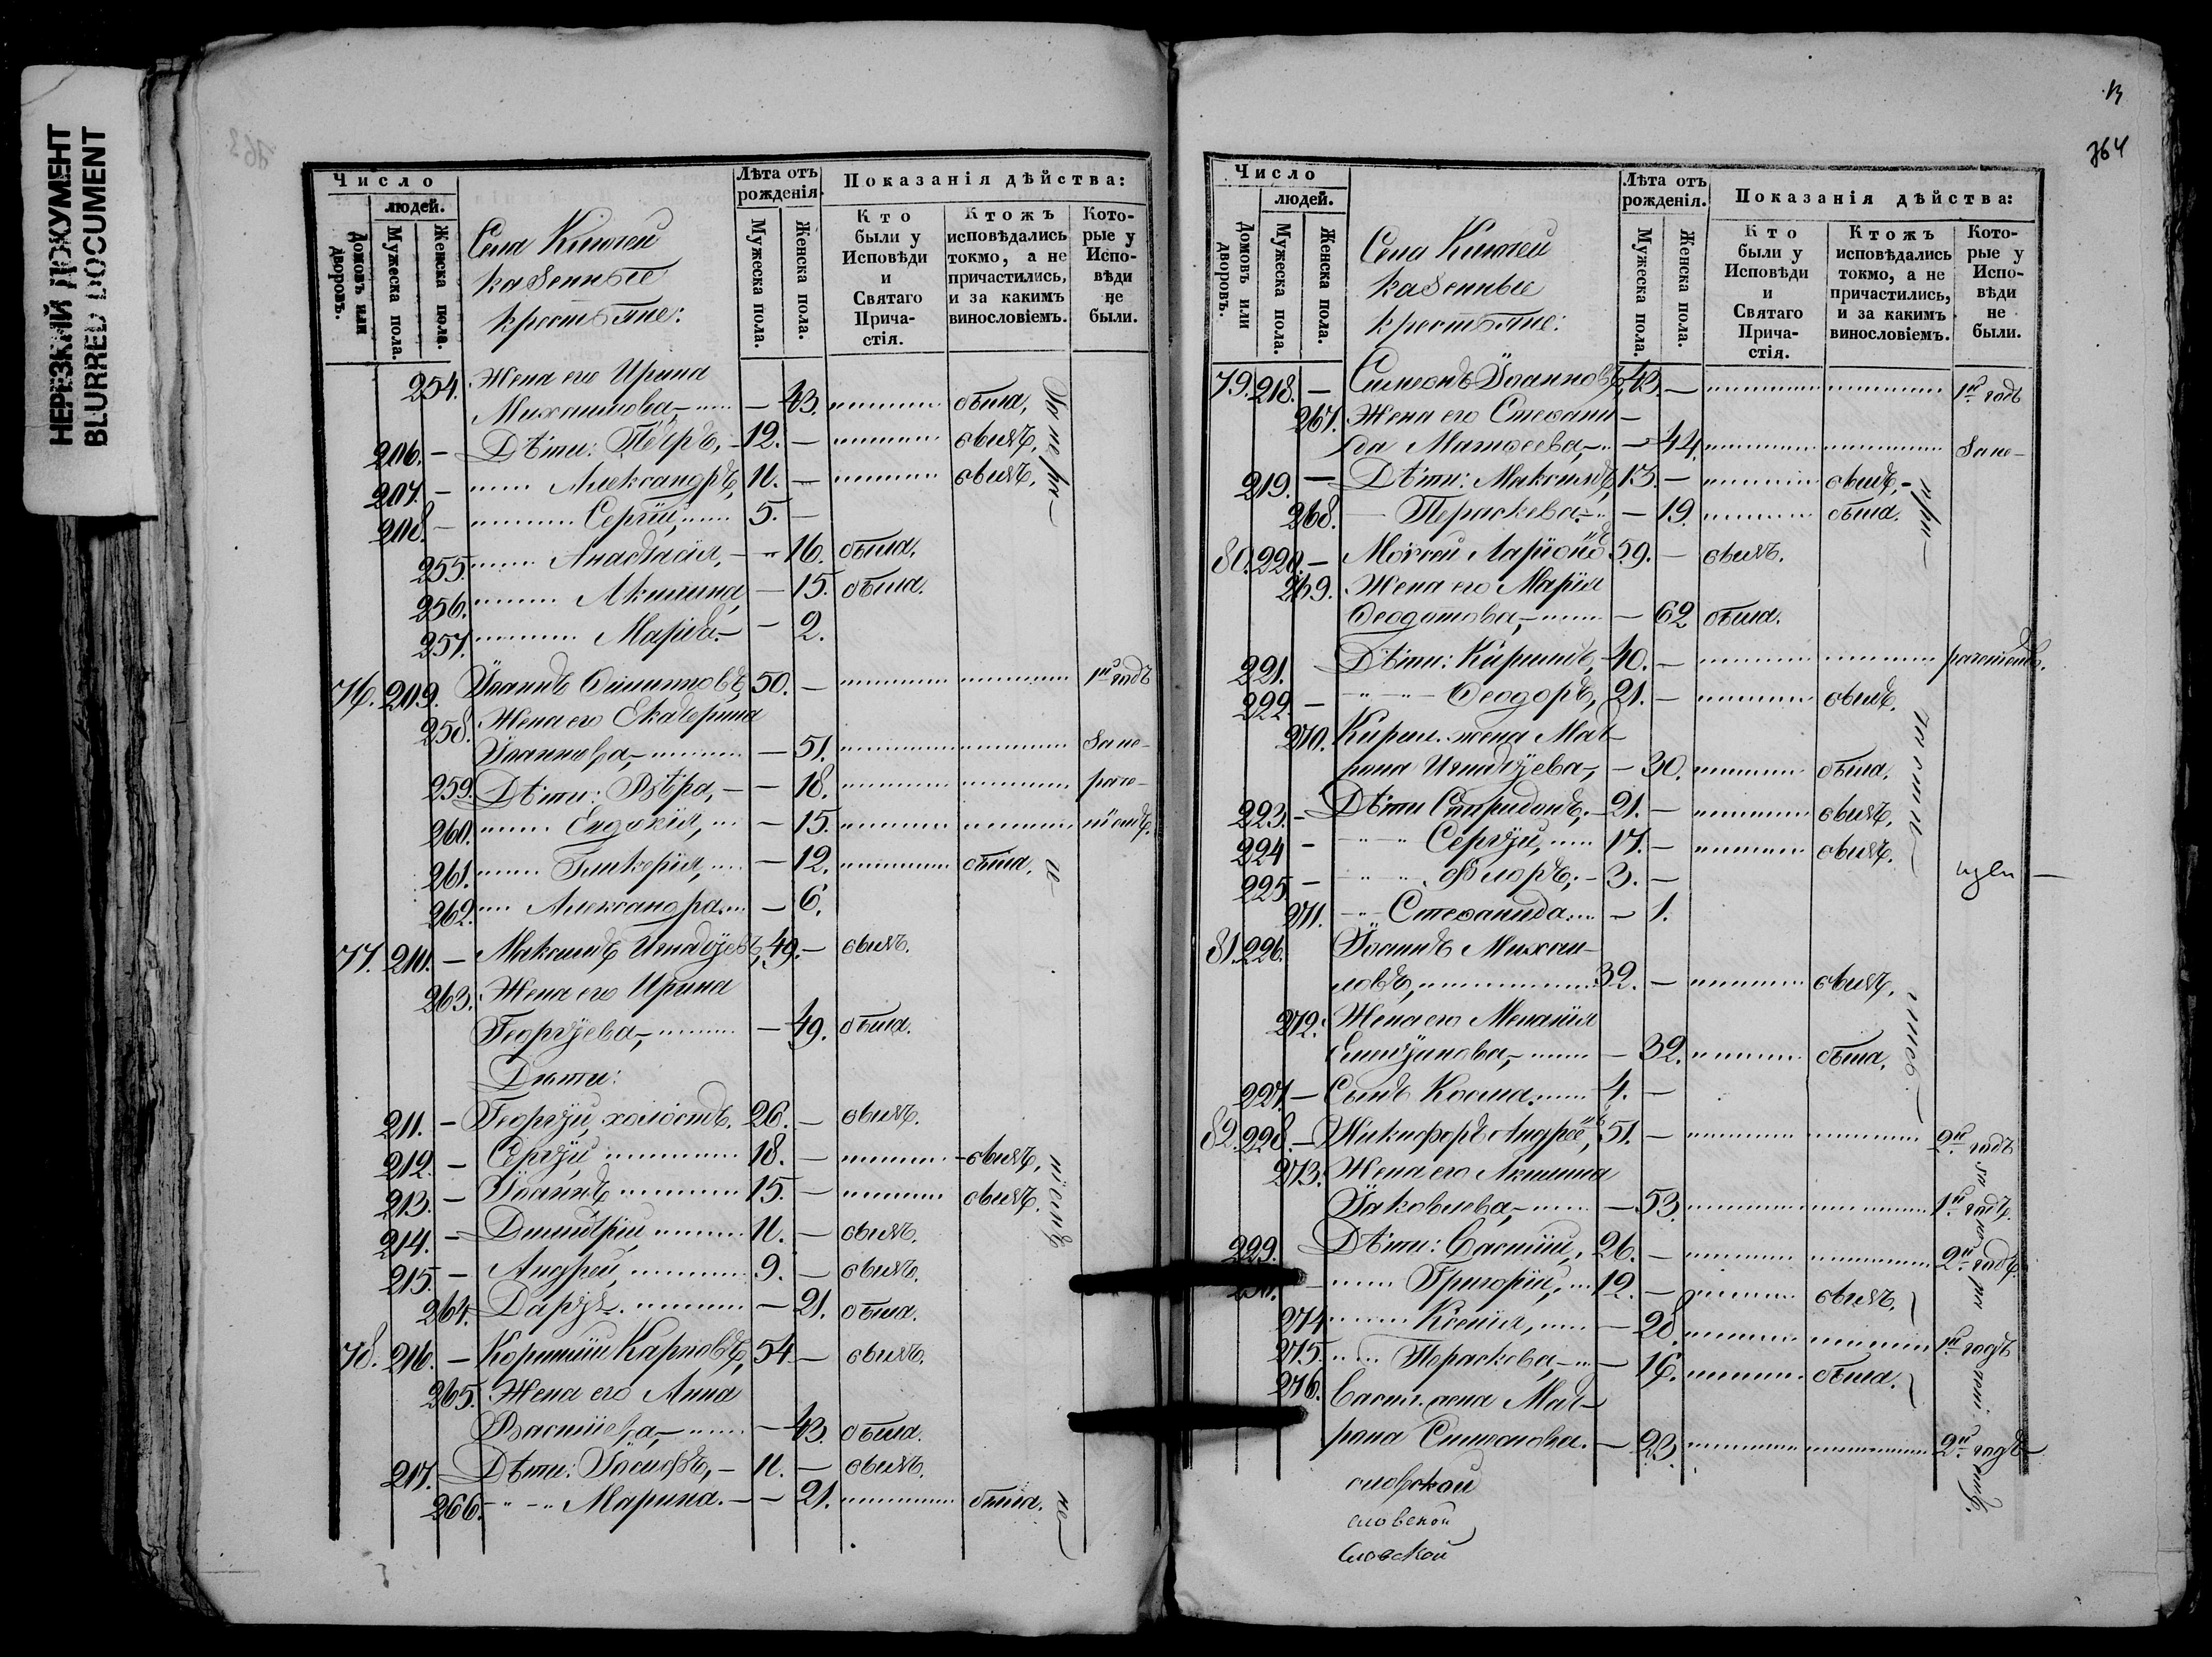 НЕРЕЗКИЙ ДОКУМЕНТ
BLURRED DOCUMENT
Число
людей.
Домовъ или дворовъ.
Мужеска пола.
Женска пола.
Села
казенные
крестьяне:
Лѣта отъ рожденія.
Мужеска пола.
Женска пола.
Показанія дѣйства:
Кто были у Исповѣди и Святаго Прича-стія.
Ктожъ исповѣдались токмо, а не причастились, и за какимъ винословіемъ.
Кото-рые у Испо-вѣди не были.
254. Жена его Ирина
Михаилова, — 43. была.
206. — Дѣти: Петръ, 12. — былъ.
207. — Александръ, 11. — былъ.
208. — Сергій, 5. —
255. Анастасія, — 16. была.
256. Акилина, — 15. была.
257. Марѳа. — 2.
За нера-
76. 209. Іоаннъ 50. — 1й годъ
258. Жена его Екатерина
Іоаннова, — 51. за не-
259. Дѣти: Вѣра, — 18. раче-
260. Евдокія, — 15. ніемъ.
261. Гликерія, — 12. была.
262. Александра. — 6.
77. 210. — Максимъ Игнатьевъ, 49. — былъ.
263. Жена его Ирина
Георгіева, — 49. была.
Дѣти:
211. — Георгій, холостъ. 26. — былъ.
212. — Сергій 18. — былъ.
213. — Іоаннъ 15. — былъ.
214. — Димитрій 11. — былъ.
215. — Андрей, 9. — былъ.
264. Дарья. — 21. была.
ніемъ
78. 216. — Корнилій Карповъ, 54 — былъ.
265. Жена его Анна
Василіева, — 43. была.
217. Дѣти: Іосифъ, 11. — былъ.
266. Марина. — 21. была.
не
13
364
Число
людей.
Домовъ или дворовъ.
Мужеска пола.
Женска пола.
Села
казенные
крестьяне:
Лѣта отъ рожденія.
Мужеска пола.
Женска пола.
Показанія дѣйства:
Кто были у Исповѣди и Святаго Прича-стія.
Ктожъ исповѣдались токмо, а не причастились, и за какимъ винословіемъ.
Кото-рые у Испо-вѣди не были.
79. 218. — Симеонъ Іоанновъ, 43. — 1й годъ
267. Жена его Стефани-
да Матѳеева, — 44. за не-
219. — Дѣти: Максимъ, 13. — былъ.
268. — Параскева. — 19. была.
при-
80. 220. — Мойсей Ларіоновъ 59. — былъ.
269. Жена его Марія
Ѳеодотова, — 62 была.
221. Дѣти: Кириллъ, 40. — раченіемъ.
222. — Ѳеодоръ, 21. — былъ.
270. Кирил. жена Мат-
рона Игнатіева, — 30. была.
223. — Дѣти Спиридонъ, 21. — былъ.
224 — Сергій, 17. — былъ.
225 — Флоръ, 3. —
271. Стефанида. — 1.
части-
81. 226. Іоаннъ Михаи-
ловъ, 32. — былъ.
272. Жена его Меланія
— 32. была.
227. — Сынъ Косма. 4. —
82. 228. — Никифоръ Андреевъ, 51. — 2й годъ
273. Жена его Акилина
Іаковлева, — 53. 1й годъ.
229. Дѣти: Василій, 26. — 2й годъ.
230. — Григорій, 12. — былъ.
274. Ксенія, — 28. 1й годъ
275. Параскева, — 16. была.
276. Васил. жена Мат-
рона Симеонова. — 23. 2й годъ
за не ра чені емъ.
словской
словской
словской